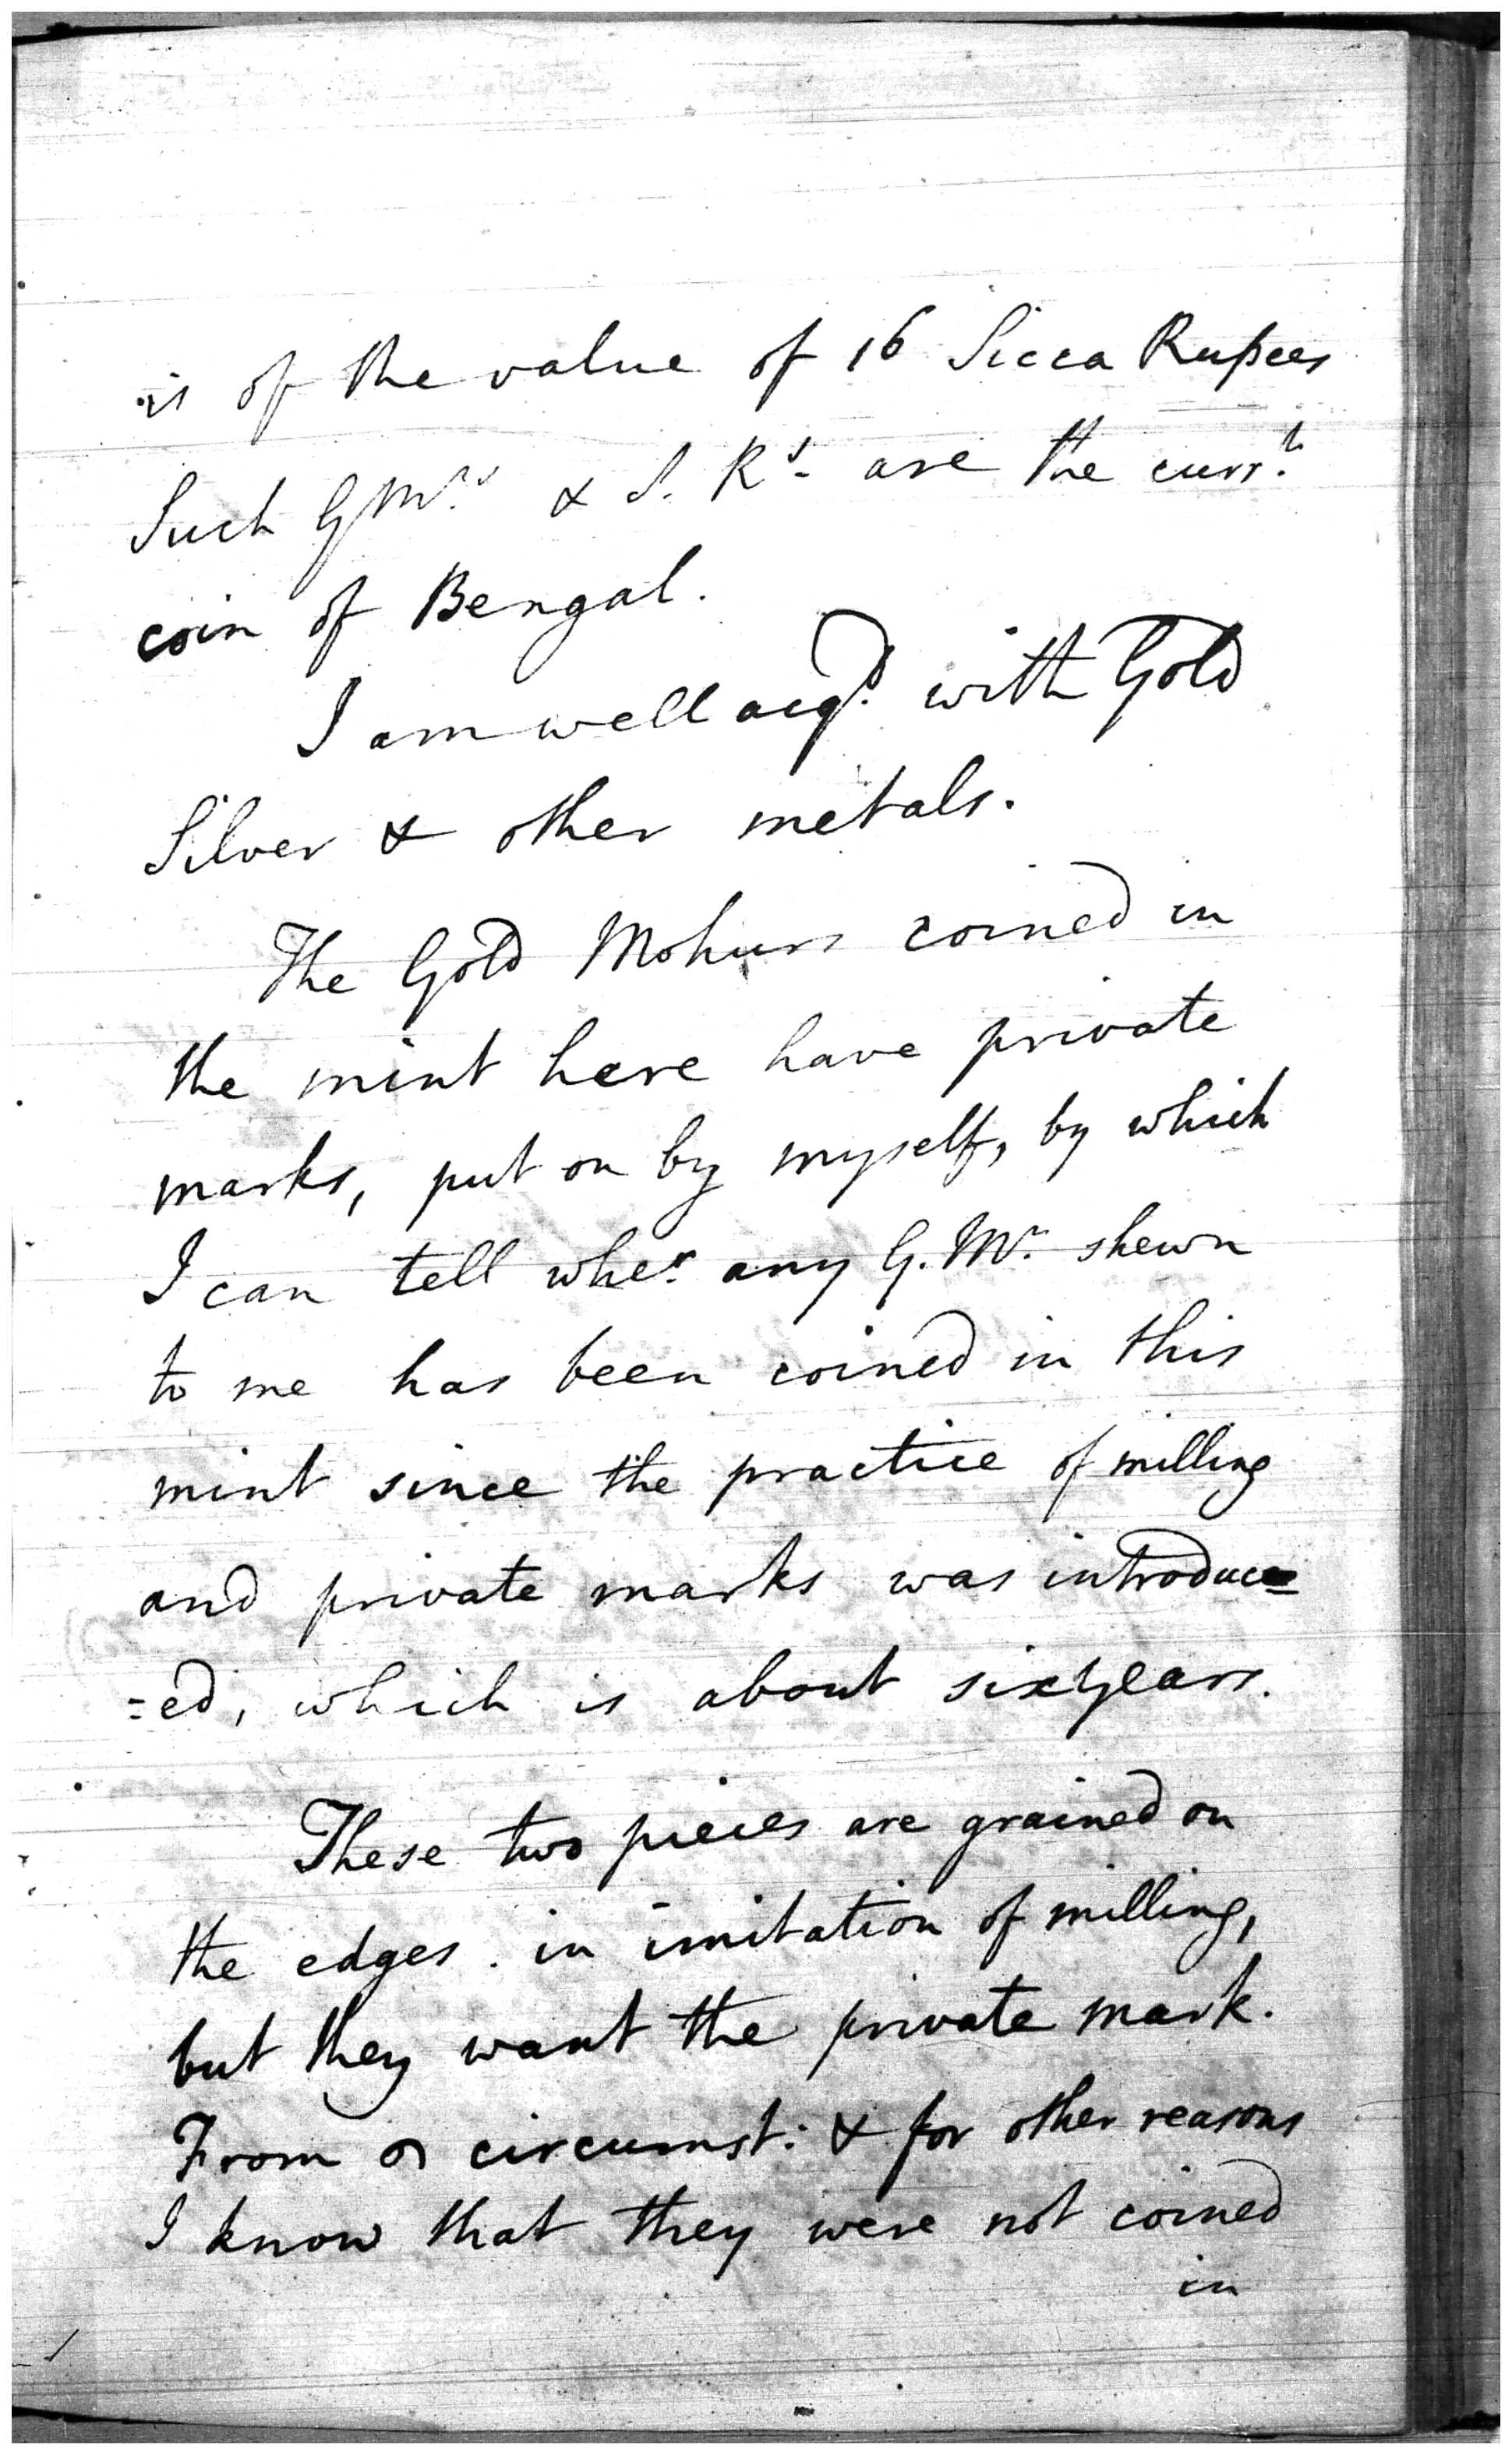 is of the value of 16 Sicca Rupees
Such G Mrs. & S. Rs. are the currt.
coin of Bengal.
I am well acqd. with Gold
Silver & other metals.
The Gold Mohurs coined in
the mint here have private
marks, put on by myself, by which
I can tell wher. any G. Mr. shewn
to me has been coined in this
mint since the practice of milling
and private marks was introduc=
=ed, which is about six years.
These two pieces are grained on
the edges in imitation of milling,
but they want the private mark.
From circumst: & for other reasons
I know that they were not coined
in